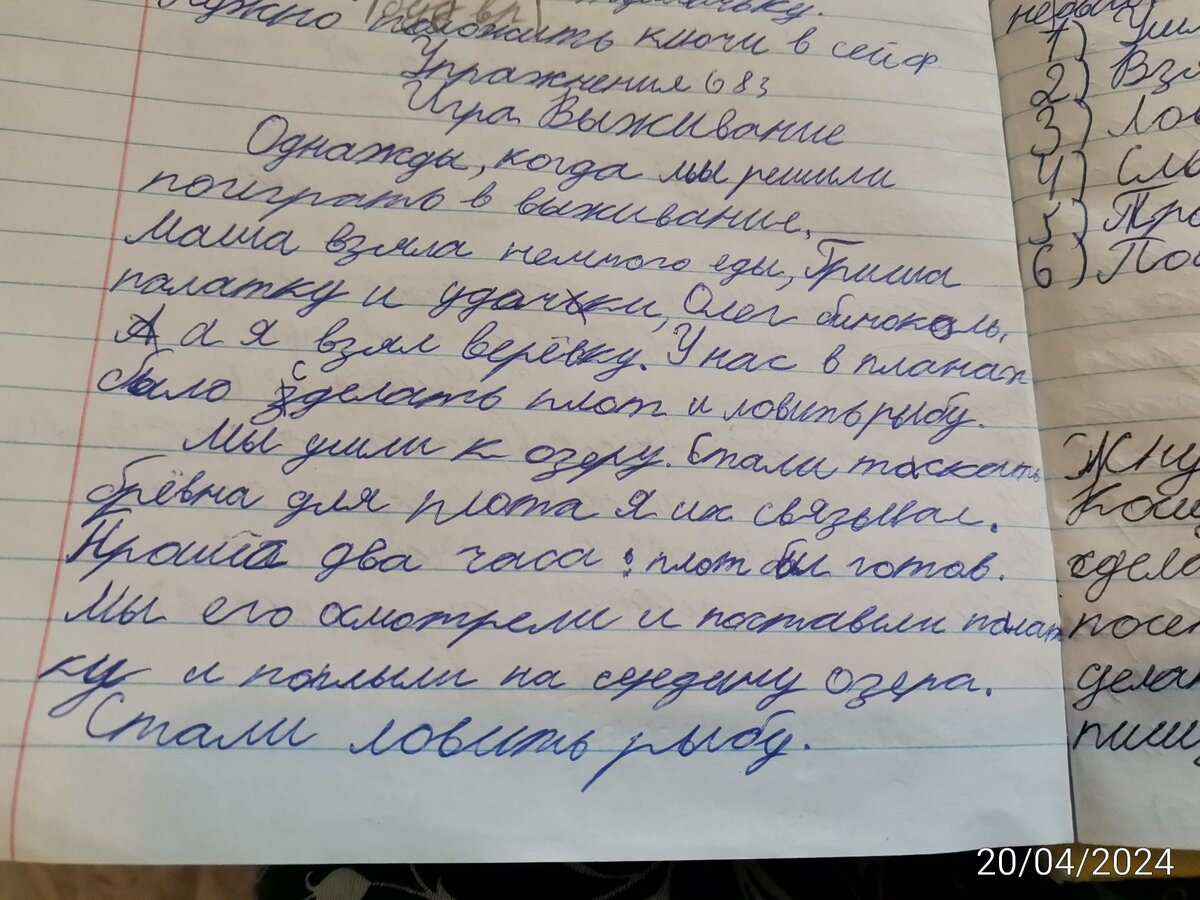 нужно положить ключи в сейф
Упражнения 683
Игра Выживание
Однажды, когда мы решили
поиграть в выживание,
Маша взяла немного еды, Гриша
палатку и удочки, Олег бинокль,
А а я взял верёвку. У нас в планах
было сделать плот и ловить рыбу.
Мы ушли к озеру. Стали таскать
брёвна для плота Я их связывал.
Прошло два часа : плот был готов.
Мы его осмотрели и поставили палат
ку и поплыли на середину озера.
Стали ловить рыбу.
1)
2) Взя
3) Лов
4)
5)
6) Пос
сдела
посе
делат
пишу
20/04/2024